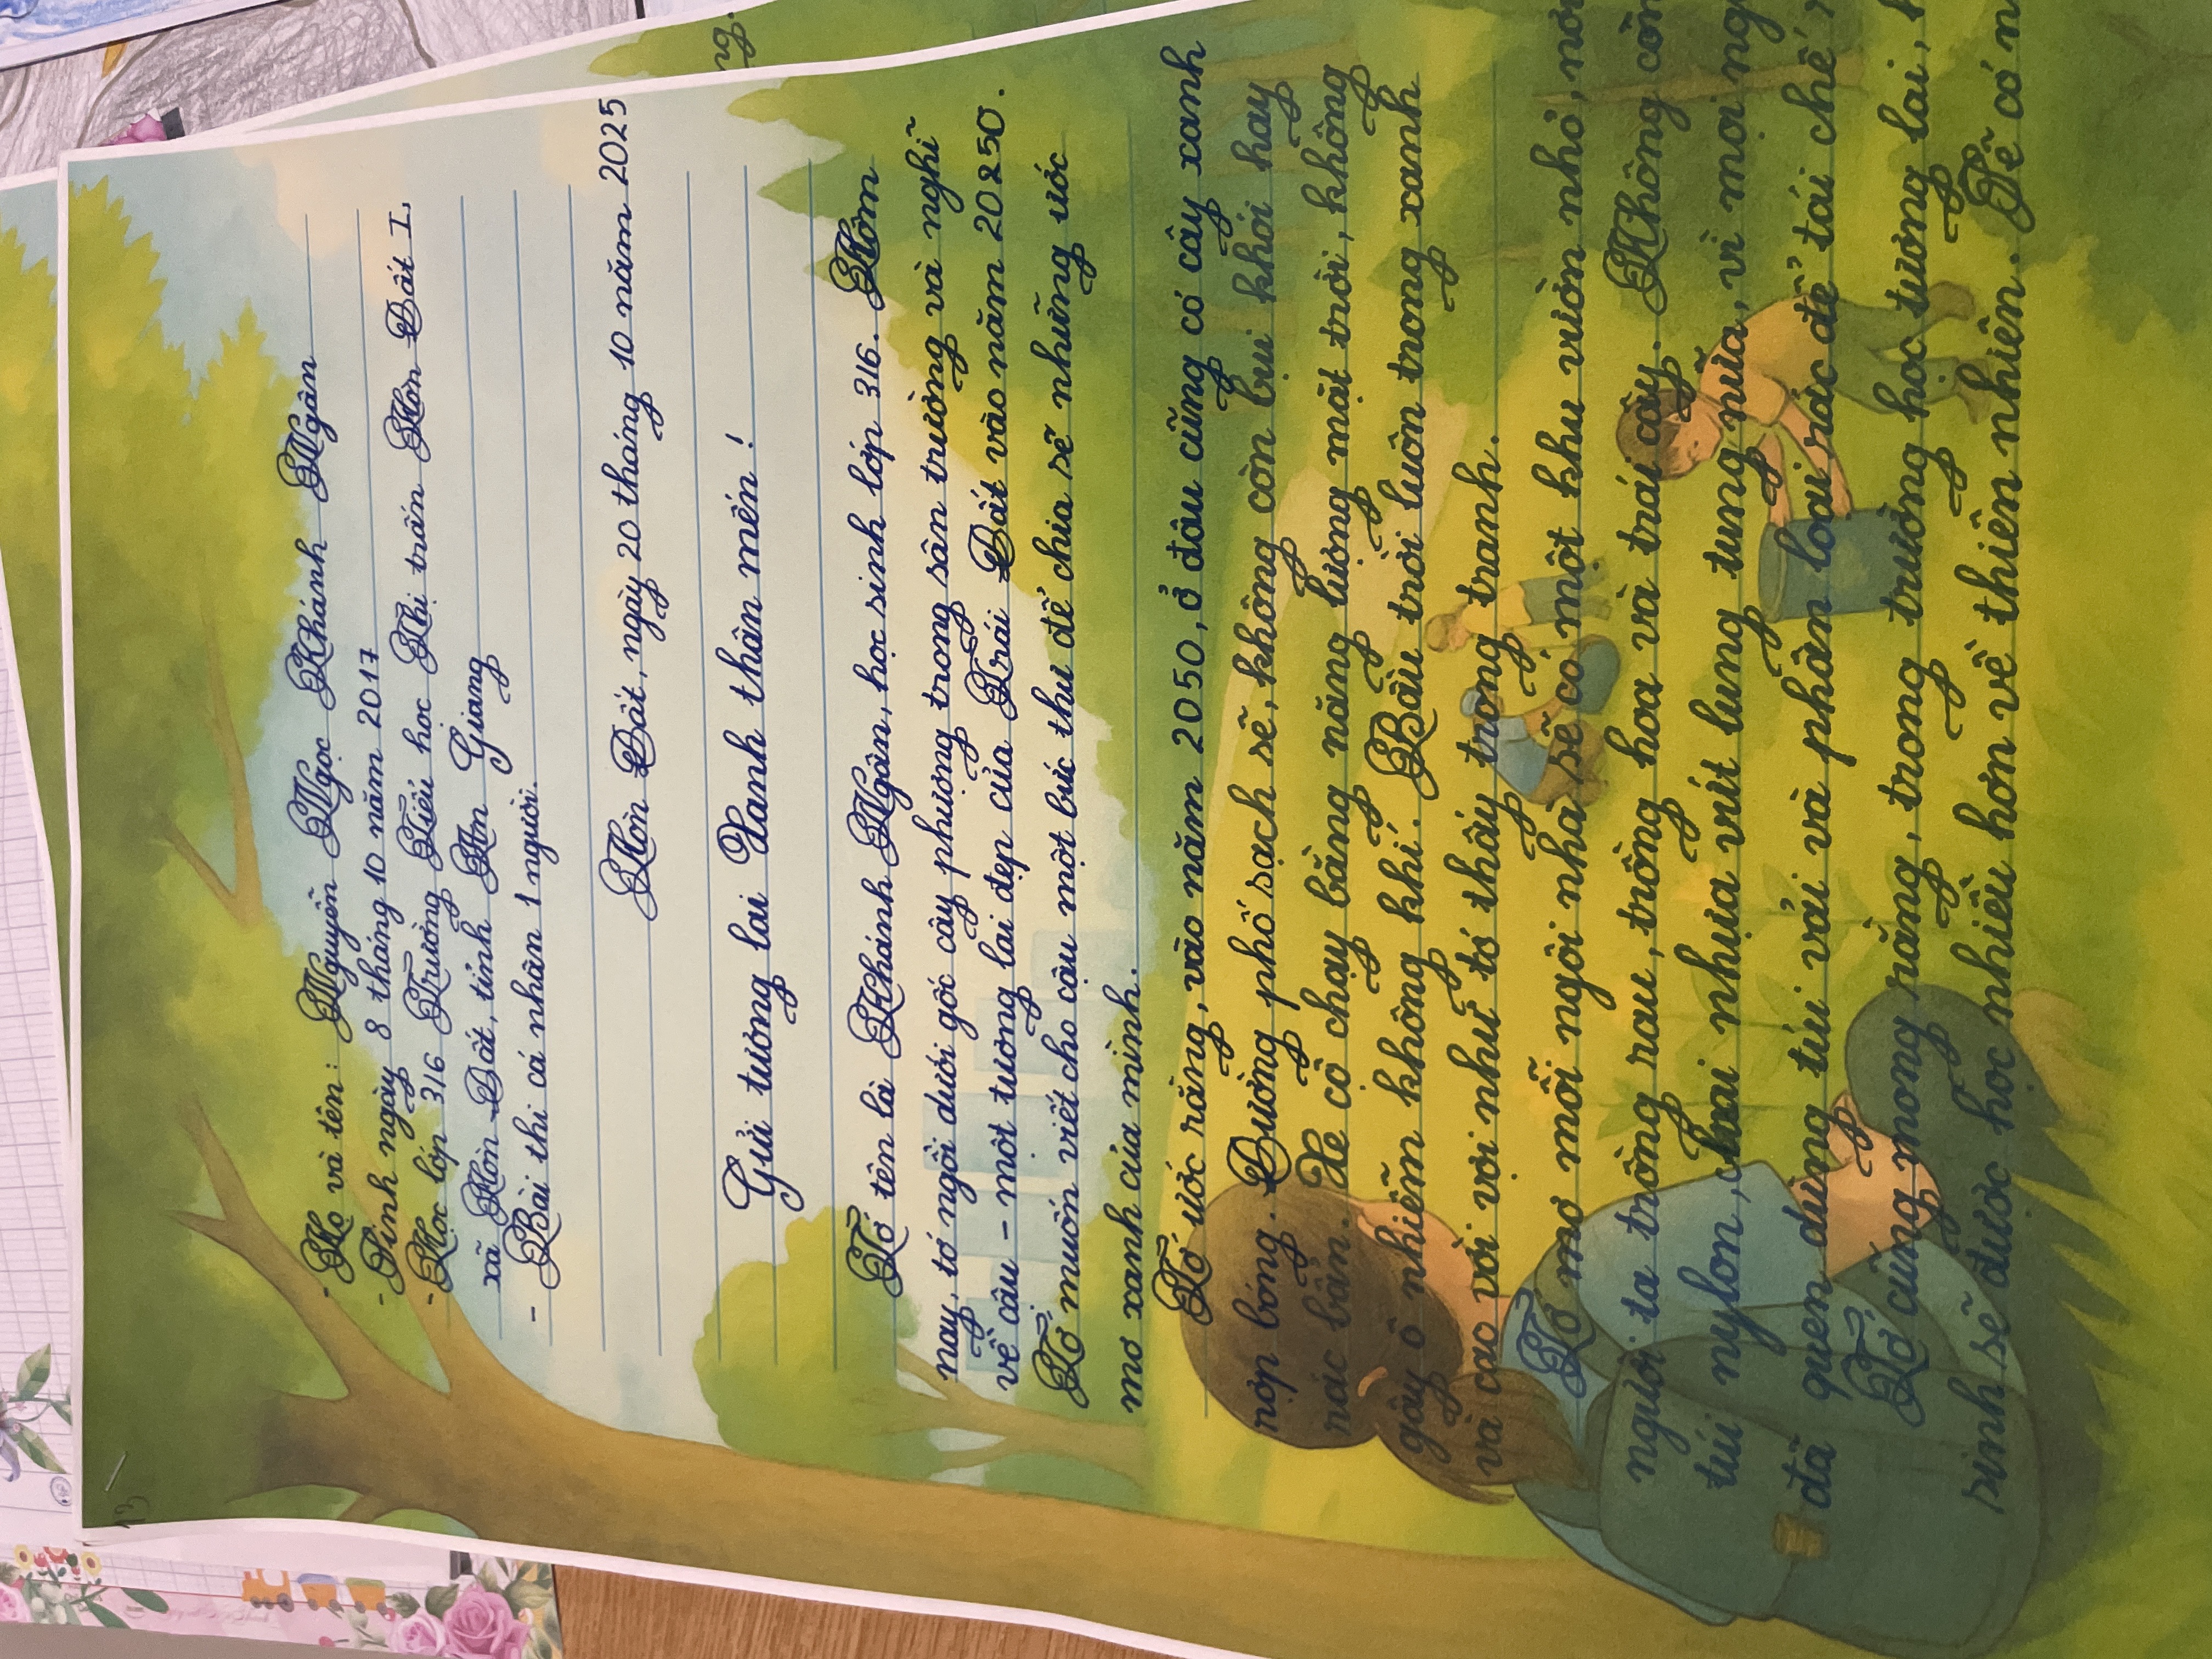 13
- Họ và tên: Nguyễn Ngọc Khánh Ngân
- Sinh ngày 8 tháng 10 năm 2017
- Học lớp 3/6 Trường Tiểu học Thị trấn Hòn Đất I,
xã Hòn Đất, tỉnh An Giang
- Bài thi cá nhân 1 người.
Hòn Đất, ngày 20 tháng 10 năm 2025
Gửi tương lai Xanh thân mến!
Tớ tên là Khánh Ngân, học sinh lớp 3/6. Hôm
nay, tớ ngồi dưới gốc cây phượng trong sân trường và nghĩ
về cậu - một tương lai đẹp của Trái Đất vào năm 20250.
Tớ muốn viết cho cậu một bức thư để chia sẽ những ước
mơ xanh của mình.
Tớ ước rằng, vào năm 2050, ở đâu cũng có cây xanh
rợp bóng. Đường phố sạch sẽ, không còn bụi khói hay
rác bẩn. Xe cộ chạy bằng năng lượng mặt trời, không
gây ô nhiễm không khí. Bầu trời luôn trong xanh
và cao vời vợi như tớ thấy trong tranh.
Tớ mơ mỗi ngôi nhà sẽ có một khu vườn nhỏ,
người ta trồng rau, trồng hoa và trái cây. Không còn
túi nylon, chai nhựa vứt lung tung nữa, vì mọi
đã quen dùng túi vải và phân loại rác để tái chế
Tớ cũng mong rằng, trong trường học tương lai,
sinh sẽ được học nhiều hơn về thiên nhiên. Sẽ có
ng.